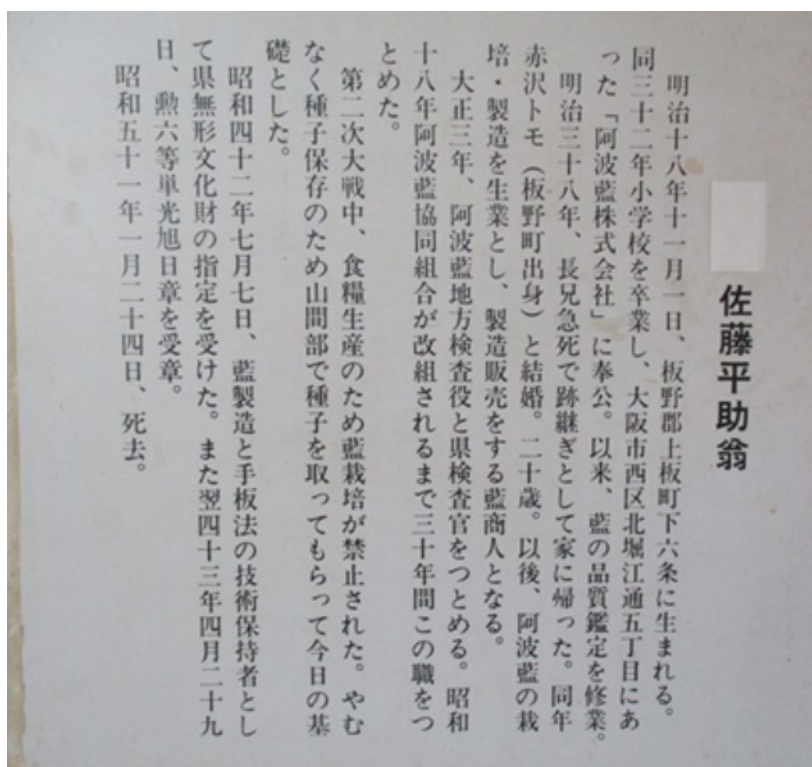 佐藤平助翁
明治十八年十一月一日、板野郡上板町下六条に生まれる。
同三十二年小学校を卒業し、大阪市西区北堀江通五丁目にあ
った「阿波藍株式会社」に奉公。以来、藍の品質鑑定を修業。
明治三十八年、長兄急死で跡継ぎとして家に帰った。同年
赤沢トモ（板野町出身）と結婚。二十歳。以後、阿波藍の栽
培・製造を生業とし、製造販売をする藍商人となる。
大正三年、阿波藍地方検査役と県検査官をつとめる。昭和
十八年阿波藍協同組合が改組されるまで三十年間この職をつ
とめた。
第二次大戦中、食糧生産のため藍栽培が禁止された。やむ
なく種子保存のため山間部で種子を取ってもらって今日の基
礎とした。
昭和四十二年七月七日、藍製造と手板法の技術保持者とし
て県無形文化財の指定を受けた。また翌四十三年四月二十九
日、勲六等単光旭日章を受章。
昭和五十一年一月二十四日、死去。